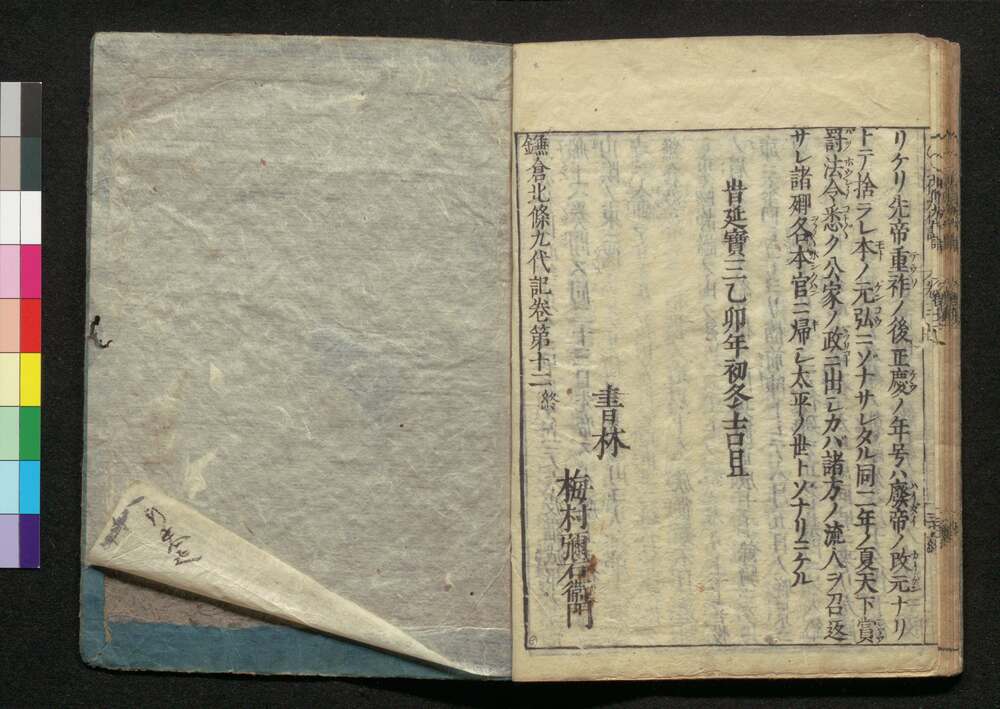 リケリ先帝重祚ノ後正慶ノ年号ハ廢帝ノ改元ナリ
トテ捨ラレ本ノ元弘ニソナサレタル同二年ノ夏天下賞
罰法令悉ク公家ノ政ニ出シカバ諸方ノ流人ヲ召返
サレ諸卿各本官ニ帰シ太平ノ世トソナリニケル
旹延寳三乙卯年初冬吉旦
書林
梅村彌右衛門
鎌倉北條九代記卷第十二終